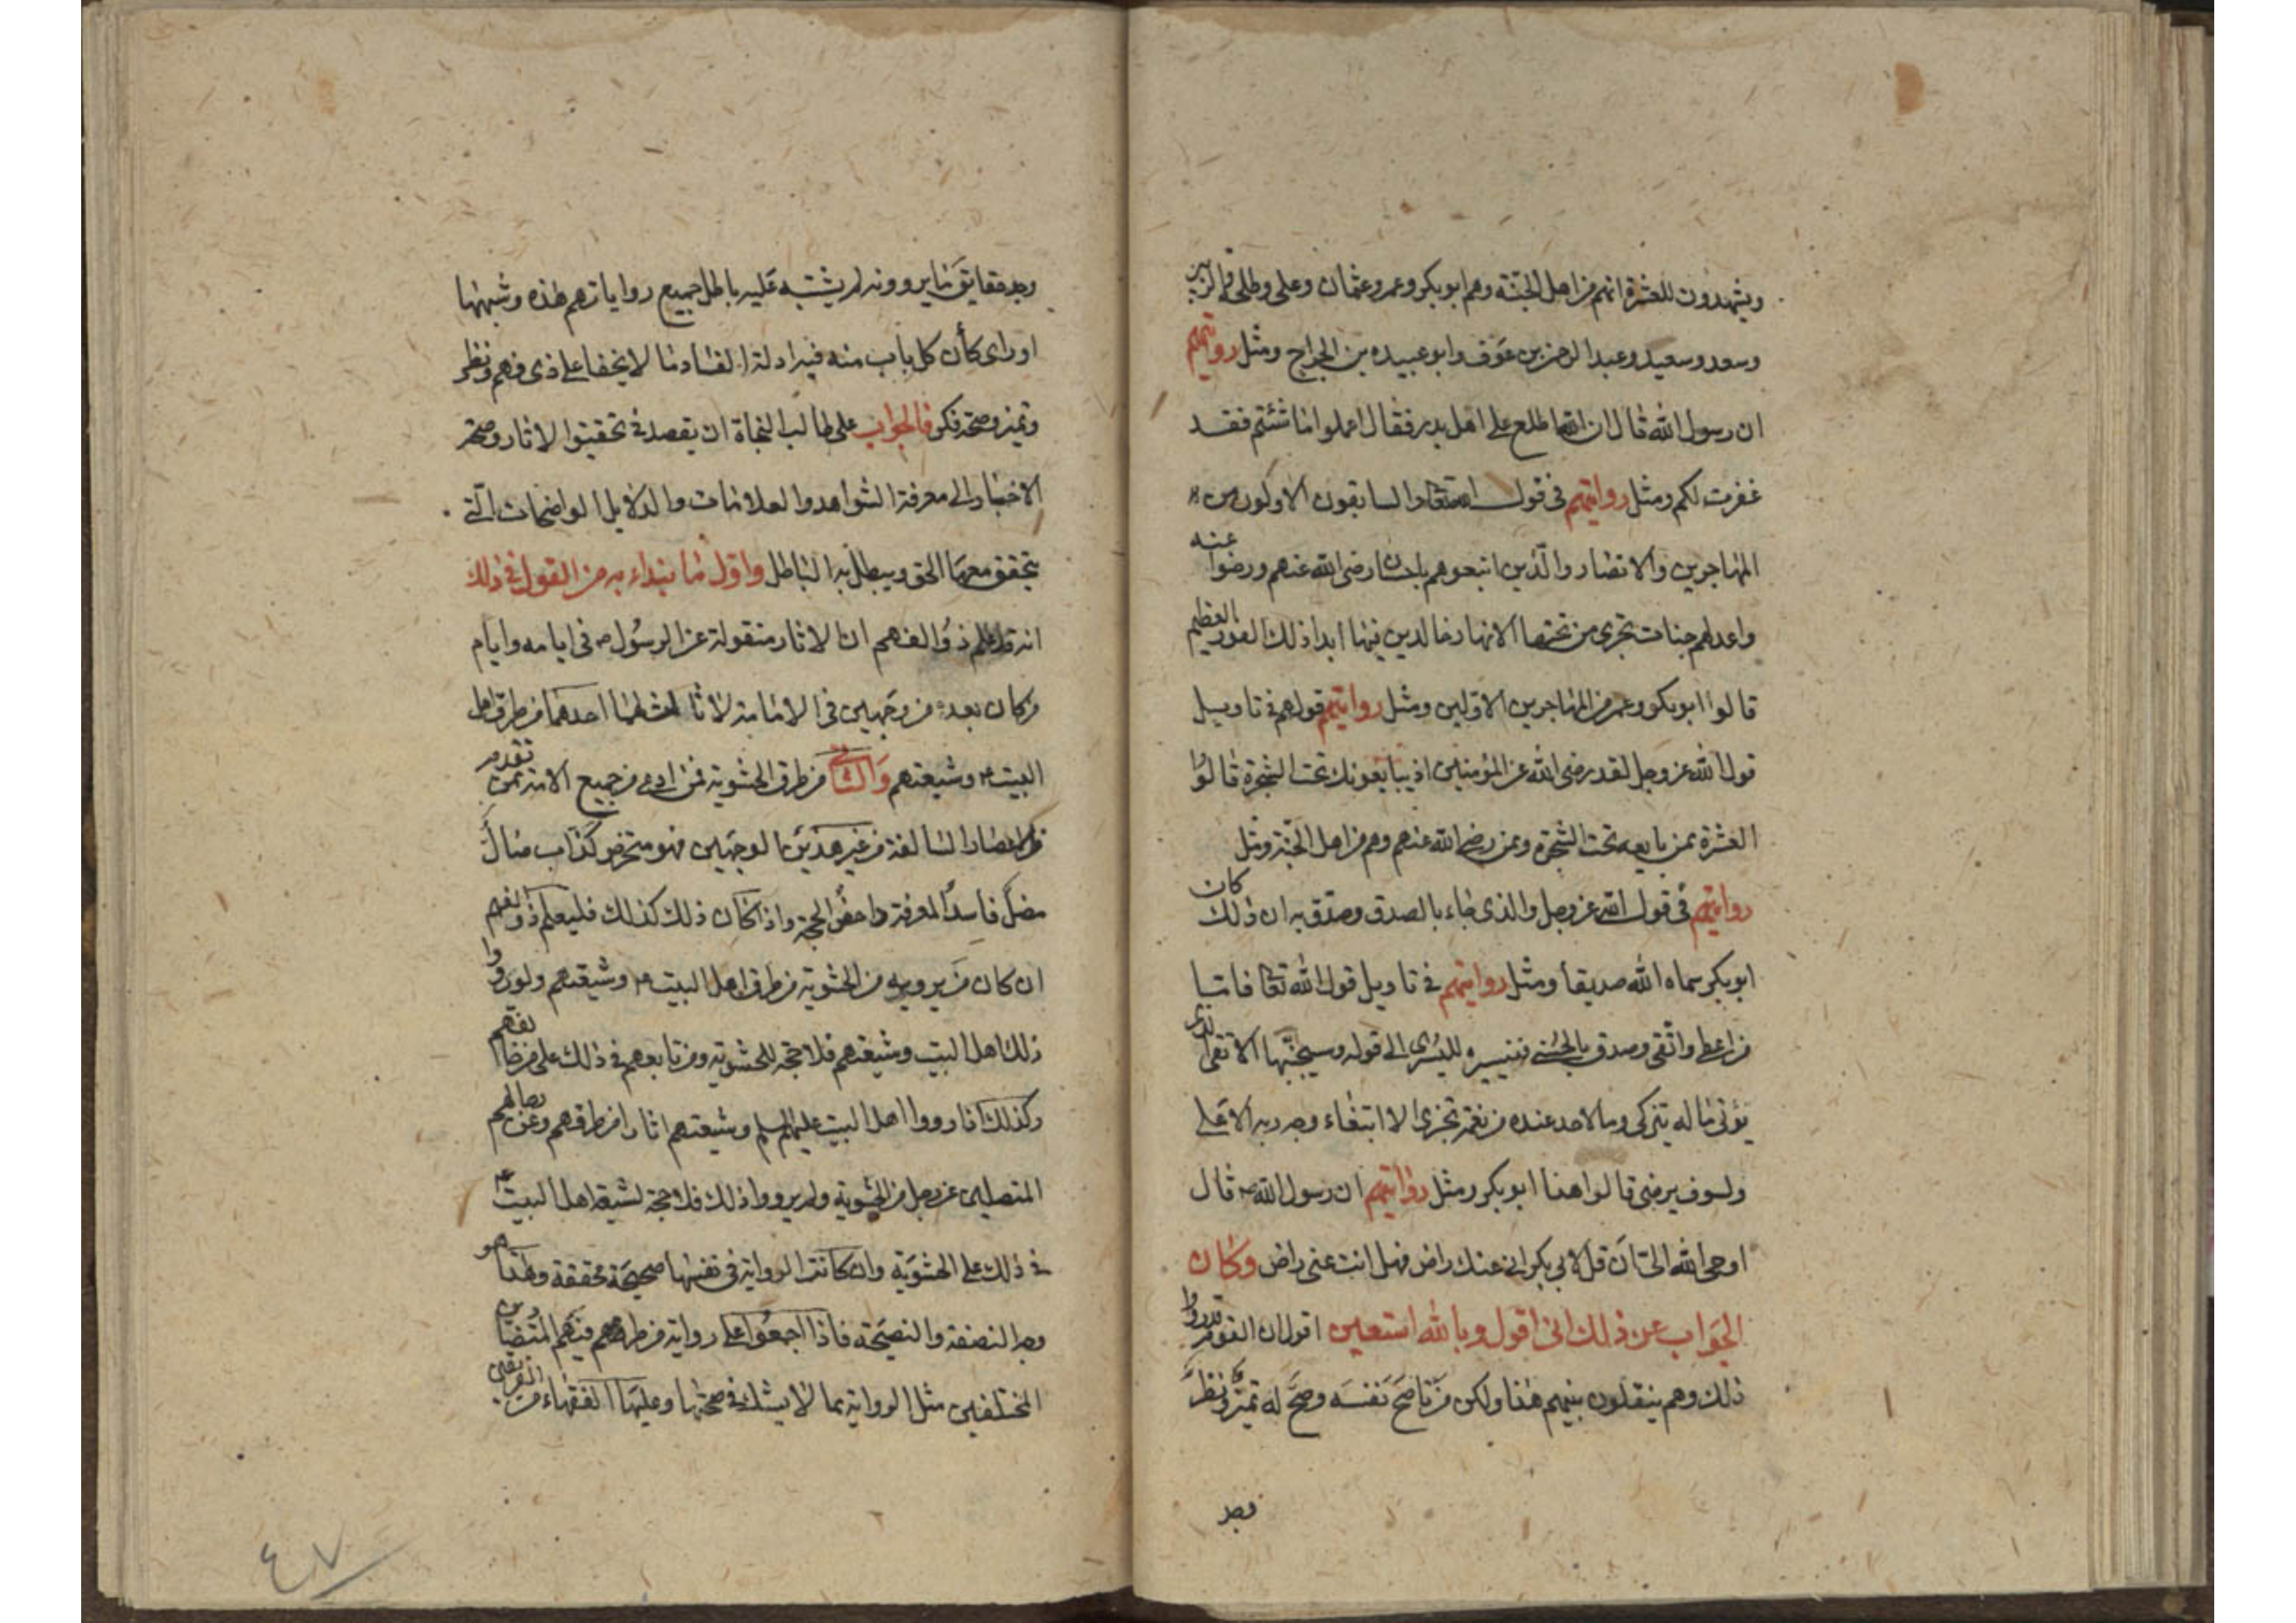 ويشهدون للعشرة انهم من اهل الجنّة وهم ابو بكر وعمر وعثمان وعلى وطلحة والزبير
وسعد وسعيد وعبد الرحمن بن عوف وابو عبيده بن الجراح ومثل روايتهم
ان رسول الله قال ان الله اطلع على اهل بدر فقال اعملوا ما شئتم فقد
غفرت لكم ومثل روايتهم فى قول الله تعالى والسابقون الاولون من
المهاجرين والانصار والّذين اتبعوهم باحسان رضى الله عنهم ورضوا عنه
واعد لهم جنات تجرى من تحتها الانهار خالدين فيها ابدا ذلك الفوز العظيم
قالوا ابو بكر وعمر من المهاجرين الاولين ومثل روايتهم قولهم فى تاويل
قول الله عز وجل لقد رضى الله عن المؤمنين اذ يبايعونك تحت الشجرة قالوا
العشرة ممن بايعه تحت الشجرة وممن رضى الله عنهم وهم من اهل الجنّة ومثل
روايتهم فى قول الله عز وجل والذى جاء بالصدق وصدّق به ان ذلك كان
ابو بكر سماه الله صديقا ومثل روايتهم فى تاويل قول الله تعالى فاما
من اعطى واتّقى وصدق بالحسنى فسنيسره لليسرى الى قوله وسيجنّبها الاتقى الذى
يؤتى ماله يتزكى وما لاحد عنده من نعمة تجزى الا ابتغاء وجه ربه الاعلى
ولسوف يرضى قالوا هذا ابو بكر ومثل روايتهم ان رسول الله ص قال
اوحى الله الىّ ان قل لابى بكر انى عنك راض فهل انت عنى راض وكان
الجواب عن ذلك انى اقول وبالله استعين اقول ان القوم قد رووا
ذلك وهم ينقلون بينهم هذا ولكن من ناصح نفسه وصحّ له تميّز ونظر
وجد
وجد حقايق ما يروونه لم يشتبه عليه باطل جميع رواياتهم هذه وشبهها
او راى كأن كل باب منه فيه ادلة الفساد ما لا يخفا على ذى فهم ونظر
وتميز وصحة فكر فالجواب على طالب النجاة ان يقصد فى تحقيق الاثار وصحة
الاخبار الى معرفة الشواهد والعلامات والدلايل الواضحات الّتى
يتحقق معها الحق ويبطل به الباطل واوّل ما نبتداء به من القول فى ذلك
انه قد علم ذو الفهم ان الاثار منقولة عن الرسول ص فى ايامه وايام
من كان بعده من وجهين فى الامامة لا ثالث لهما احدهما من طرق اهل
البيت ع وشيعتهم والثانى من طرق الحشوية فمن ادعى من جميع الامة ممن تقدم
من الاعصار السالفة من غير هذين الوجهين فهو متخرص كذّاب ضالّ
مضلّ فاسد المعرفة داحض الحجة واذا كان ذلك كذلك فليعلم ذو الفهم
ان كان من يرويه من الحشوية من طرق اهل البيت ع وشيعتهم ولم يرووا
ذلك اهل البيت وشيعتهم فلا حجة للحشوية ومن تابعهم فى ذلك على من خالفهم
وكذلك اذا رووا اهل البيت عليهم السلم وشيعتهم اثارا من طرقهم وعن رجالهم
المتصلين عن رجل من الحشوية ولم يرووا ذلك فلا حجة لشيعة اهل البيت ع
فى ذلك على الحشوية وان كانت الرواية فى نفسها صحيحة محققة وهذا هو
وجه النصفة والنصيحة فاذا اجمعوا على رواية من طرقهم فيهم المتضادين
المختلفين مثل الرواية بما لا يشك فى صحتها وعليها الفقهاء من الفريقين
٤٧